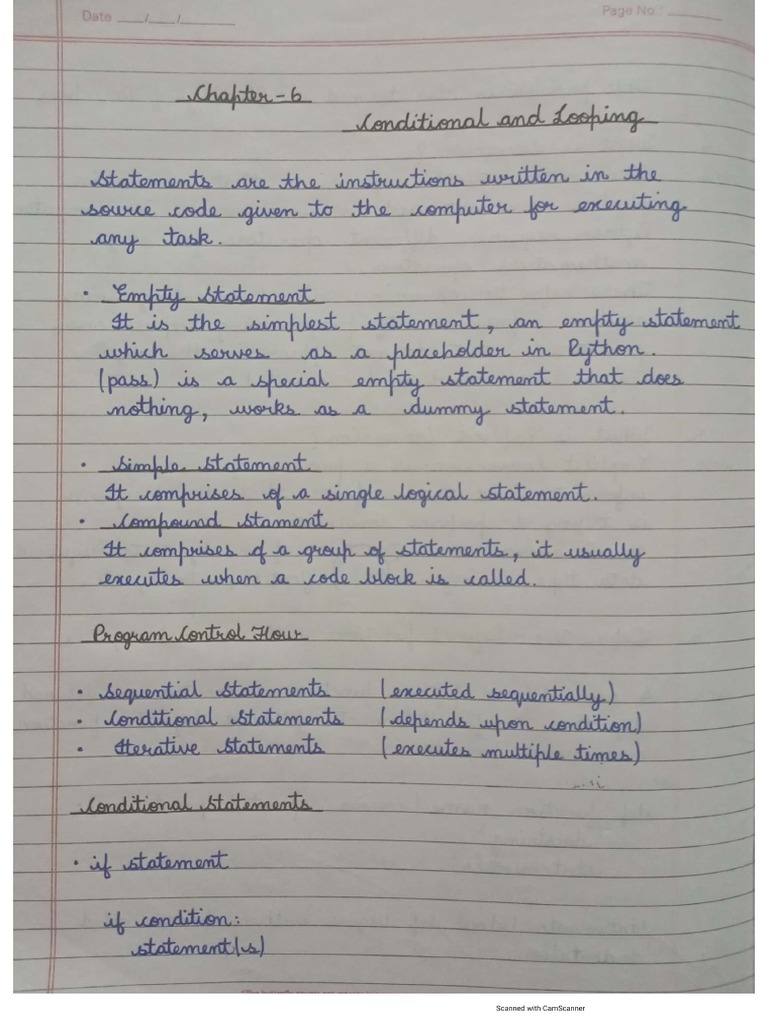 Date ___/___/______
Page No.: ______
Chapter-6
Conditional and Looping
Statements are the instructions written in the
source code given to the computer for executing
any task.
• Empty Statement
It is the simplest statement, an empty statement
which serves as a placeholder in Python.
(pass) is a special empty statement that does
nothing, works as a dummy statement.
• Simple Statement
It comprises of a single logical statement.
• Compound Stament
It comprises of a group of statements, it usually
executes when a code block is called.
Program Control Flour
• Sequential Statements (executed sequentially)
• Conditional Statements (depends upon condition)
• Iterative Statements (executes multiple times)
Conditional Statements
• if statement
if condition:
statement(s)
Scanned with CamScanner